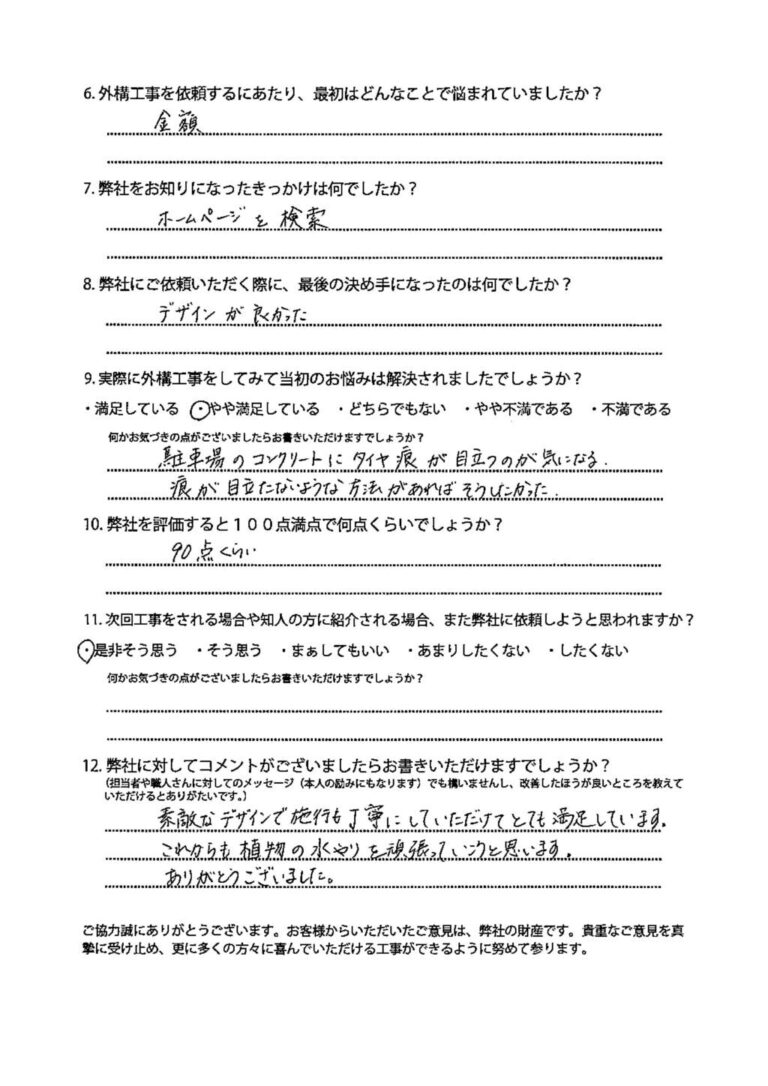 6. 外構工事を依頼するにあたり、最初はどんなことで悩まれていましたか？
金額
7. 弊社をお知りになったきっかけは何でしたか？
ホームページを検索
8. 弊社にご依頼いただく際に、最後の決め手になったのは何でしたか？
デザインが良かった
9. 実際に外構工事をしてみて当初のお悩みは解決されましたでしょうか？
・満足している ・やや満足している ・どちらでもない ・やや不満である ・不満である
何かお気づきの点がございましたらお書きいただけますでしょうか？
駐車場のコンクリートにタイヤ痕が目立つのが気になる.
痕が目立たないような方法があればそうしたかった.
10. 弊社を評価すると１００点満点で何点くらいでしょうか？
90点くらい
11. 次回工事をされる場合や知人の方に紹介される場合、また弊社に依頼しようと思われますか？
・是非そう思う ・そう思う ・まぁしてもいい ・あまりしたくない ・したくない
何かお気づきの点がございましたらお書きいただけますでしょうか？
12. 弊社に対してコメントがございましたらお書きいただけますでしょうか？
（担当者や職人さんに対してのメッセージ（本人の励みにもなります）でも構いませんし、改善したほうが良いところを教えて
いただけるとありがたいです。）
素敵なデザインで施行も丁寧にしていただけてとても満足しています.
これからも植物の水やりを頑張っていこうと思います.
ありがとうございました。
ご協力誠にありがとうございます。お客様からいただいたご意見は、弊社の財産です。貴重なご意見を真
摯に受け止め、更に多くの方々に喜んでいただける工事ができるように努めて参ります。